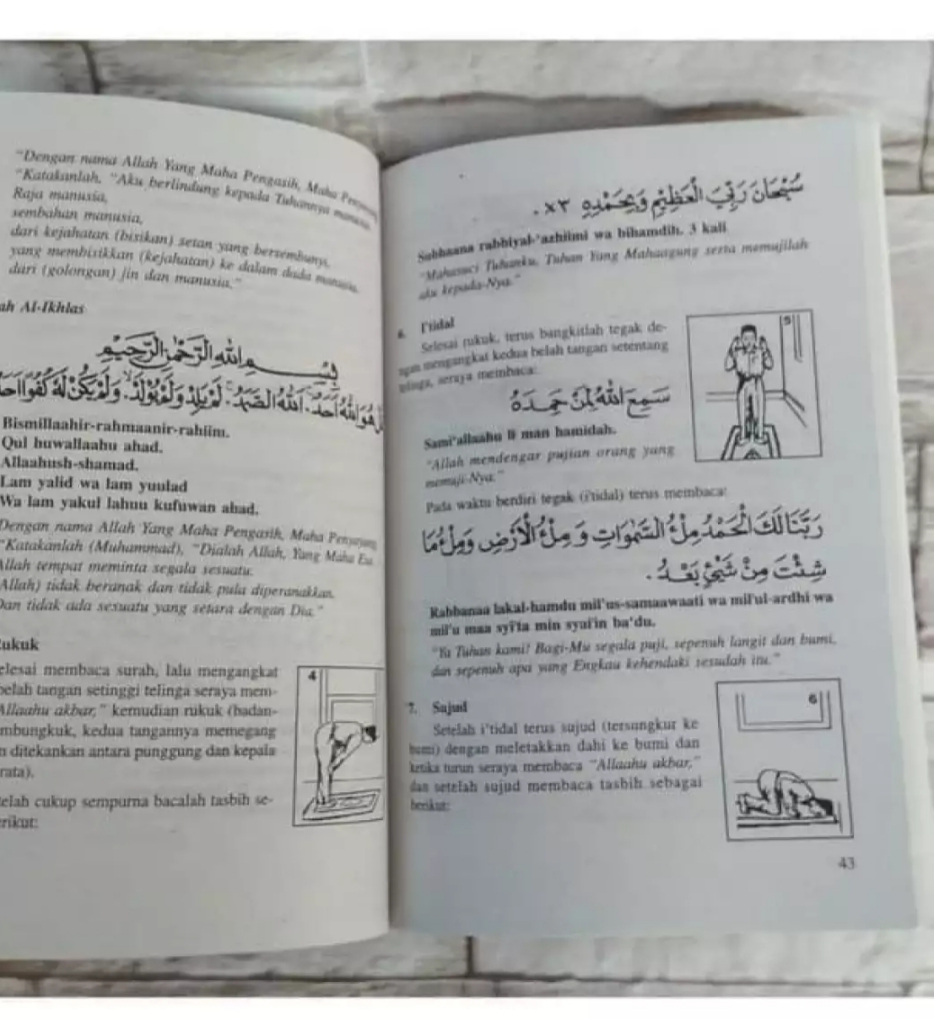 "Dengan nama Allah Yang Maha Pengasih, Maha
"Katakanlah, "Aku berlindung kepada Tuhannya manusia,
Raja manusia,
sembahan manusia,
dari kejahatan (bisikan) setan yang bersembunyi,
yang membisikkan (kejahatan) ke dalam dada manusia,
dari (golongan) jin dan manusia."
Al-Ikhlas
بِسْمِ اللهِ الرَّحْمٰنِ الرَّحِيْمِ
هُوَ اللهُ اَحَدٌ. اَللهُ الصَّمَدُ. لَمْ يَلِدْ وَلَمْ يُوْلَدْ. وَلَمْ يَكُنْ لَهُ كُفُوًا اَحَدٌ
Bismillaahir-rahmaanir-rahiim.
Qul huwallaahu ahad.
Allaahush-shamad.
Lam yalid wa lam yuulad
Wa lam yakul lahuu kufuwan ahad.
Dengan nama Allah Yang Maha Pengasih, Maha Penyayang
"Katakanlah (Muhammad), "Dialah Allah, Yang Maha Esa
Allah tempat meminta segala sesuatu.
Allah) tidak beranak dan tidak pula diperanakkan.
Dan tidak ada sesuatu yang setara dengan Dia."
ukuk
elesai membaca surah, lalu mengangkat
belah tangan setinggi telinga seraya mem-
Allaahu akbar," kemudian rukuk (badan-
mbungkuk, kedua tangannya memegang
n ditekankan antara punggung dan kepala
rata).
telah cukup sempurna bacalah tasbih se-
erikut:
4
سُبْحَانَ رَبِّيَ الْعَظِيْمِ وَبِحَمْدِهِ ×٣ .
Subhaana rabbiyal-'azhiimi wa bihamdih. 3 kali
"Mahasuci Tuhanku, Tuhan Yang Mahaagung serta memujilah
aku kepada-Nya."
6. I'tidal
Selesai rukuk, terus bangkitlah tegak de-
ngan mengangkat kedua belah tangan setentang
telinga, seraya membaca:
5
سَمِعَ اللهُ لِمَنْ حَمِدَهُ
Sami'allaahu li man hamidah.
"Allah mendengar pujian orang yang
memuji-Nya."
Pada waktu berdiri tegak (i'tidal) terus membaca:
رَبَّنَا لَكَ الْحَمْدُ مِلْءُ السَّمٰوَاتِ وَمِلْءُ الْأَرْضِ وَمِلْءُ مَا
شِئْتَ مِنْ شَيْءٍ بَعْدُ .
Rabbanaa lakal-hamdu mil'us-samaawaati wa mil'ul-ardhi wa
mil'u maa syi'ta min syai'in ba'du.
"Ya Tuhan kami! Bagi-Mu segala puji, sepenuh langit dan bumi,
dan sepenuh apa yang Engkau kehendaki sesudah itu."
7. Sujud
Setelah i'tidal terus sujud (tersungkur ke
bumi) dengan meletakkan dahi ke bumi dan
ketika turun seraya membaca "Allaahu akbar,"
dan setelah sujud membaca tasbih sebagai
berikut:
6
43